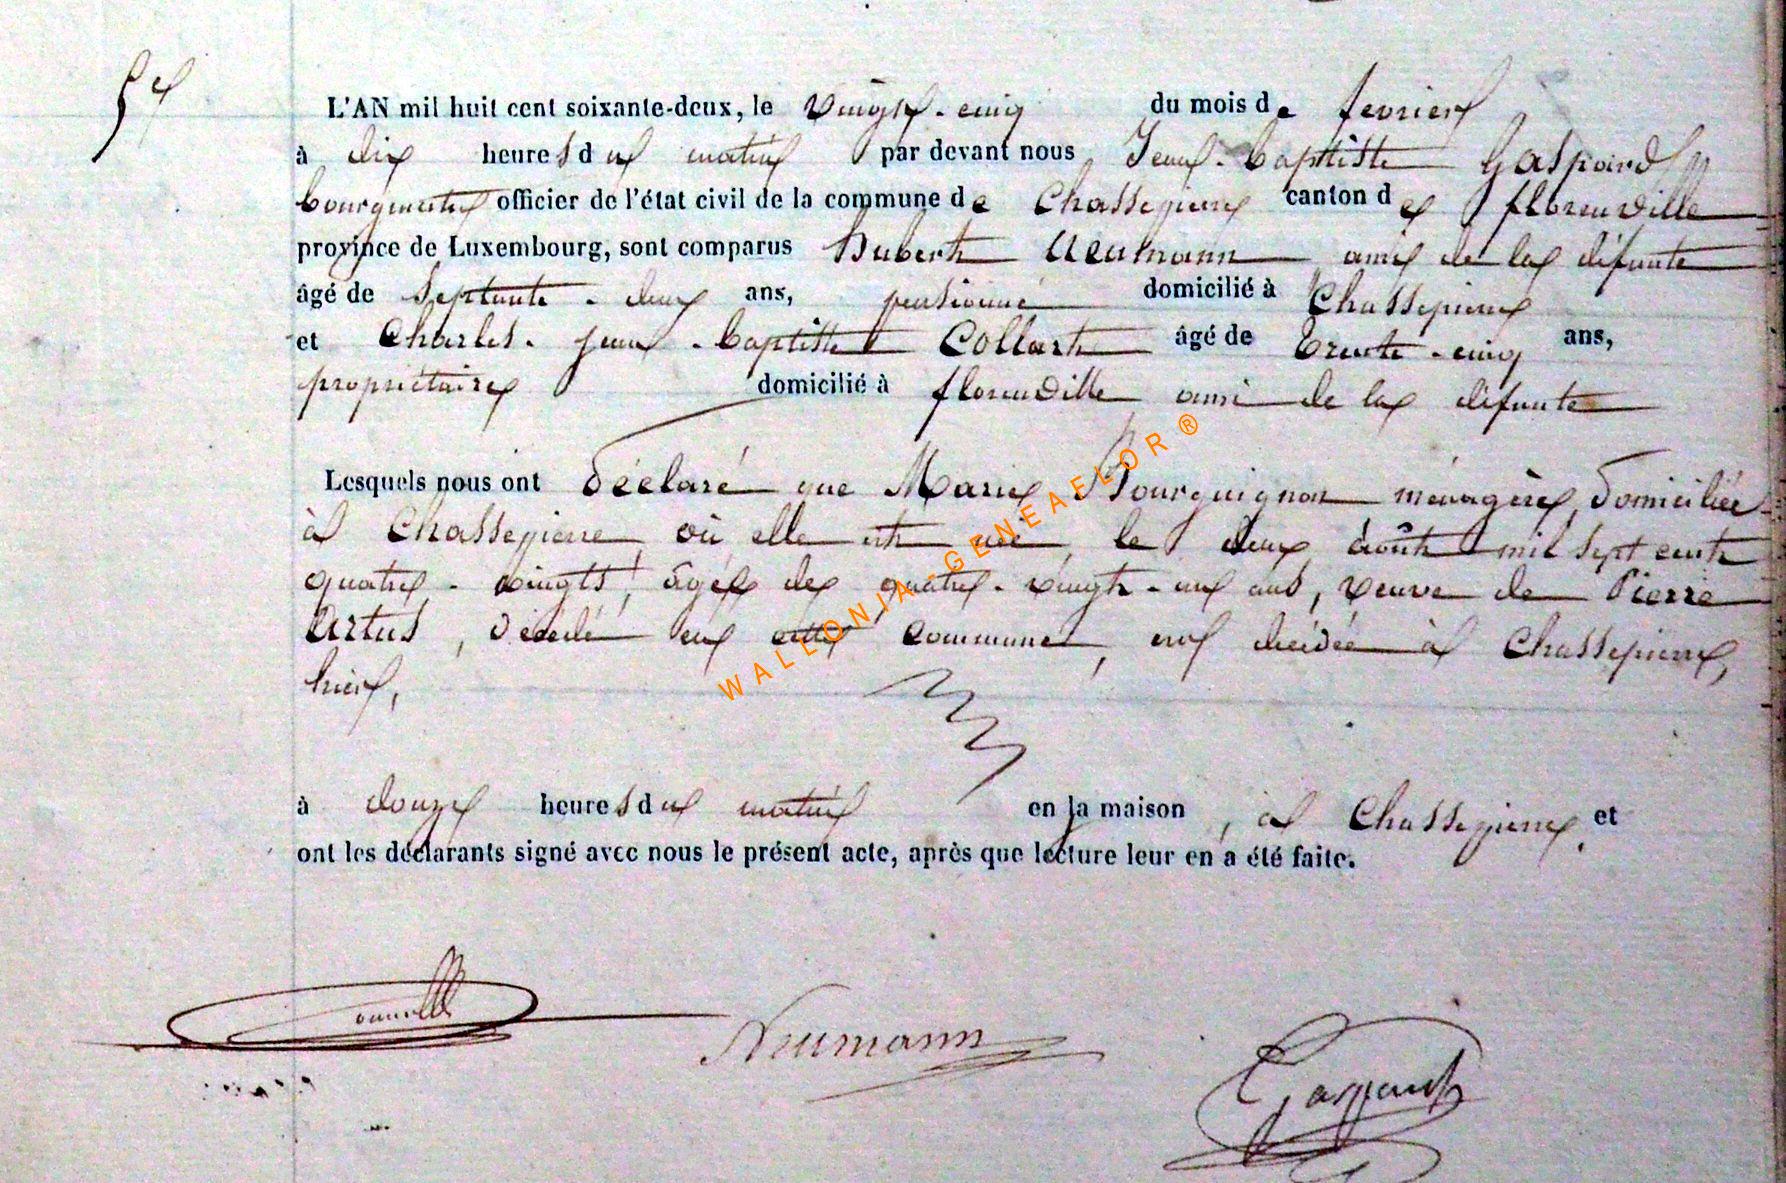 57
L'AN mil huit cent soixante-deux, le vingt-cinq du mois de fevrier
à dix heures du matin par devant nous Jean-baptiste Gaspard
bourgmestre officier de l'état civil de la commune de Chassepierre canton de florenville
province de Luxembourg, sont comparus hubert Neumann ami de la défunte
âgé de septante-deux ans, pensionné domicilié à Chassepierre
et Charles-jean-baptiste Collart âgé de trente-cinq ans,
propriétaire domicilié à florenville ami de la défunte
Lesquels nous ont déclaré que Marie Bourguignon ménagère, domiciliée
à Chassepierre, où elle est née, le deux août mil sept cent
quatre-vingts, âgée de quatre-vingt-un ans, veuve de Pierre
Artus, décédé en cette commune, est décédée à Chassepierre,
hier,
à douze heures du matin en la maison, à Chassepierre, et
ont les déclarants signé avec nous le présent acte, après que lecture leur en a été faite.
Neumann
Gaspard
WALLONIA-GENEAFLOR ®